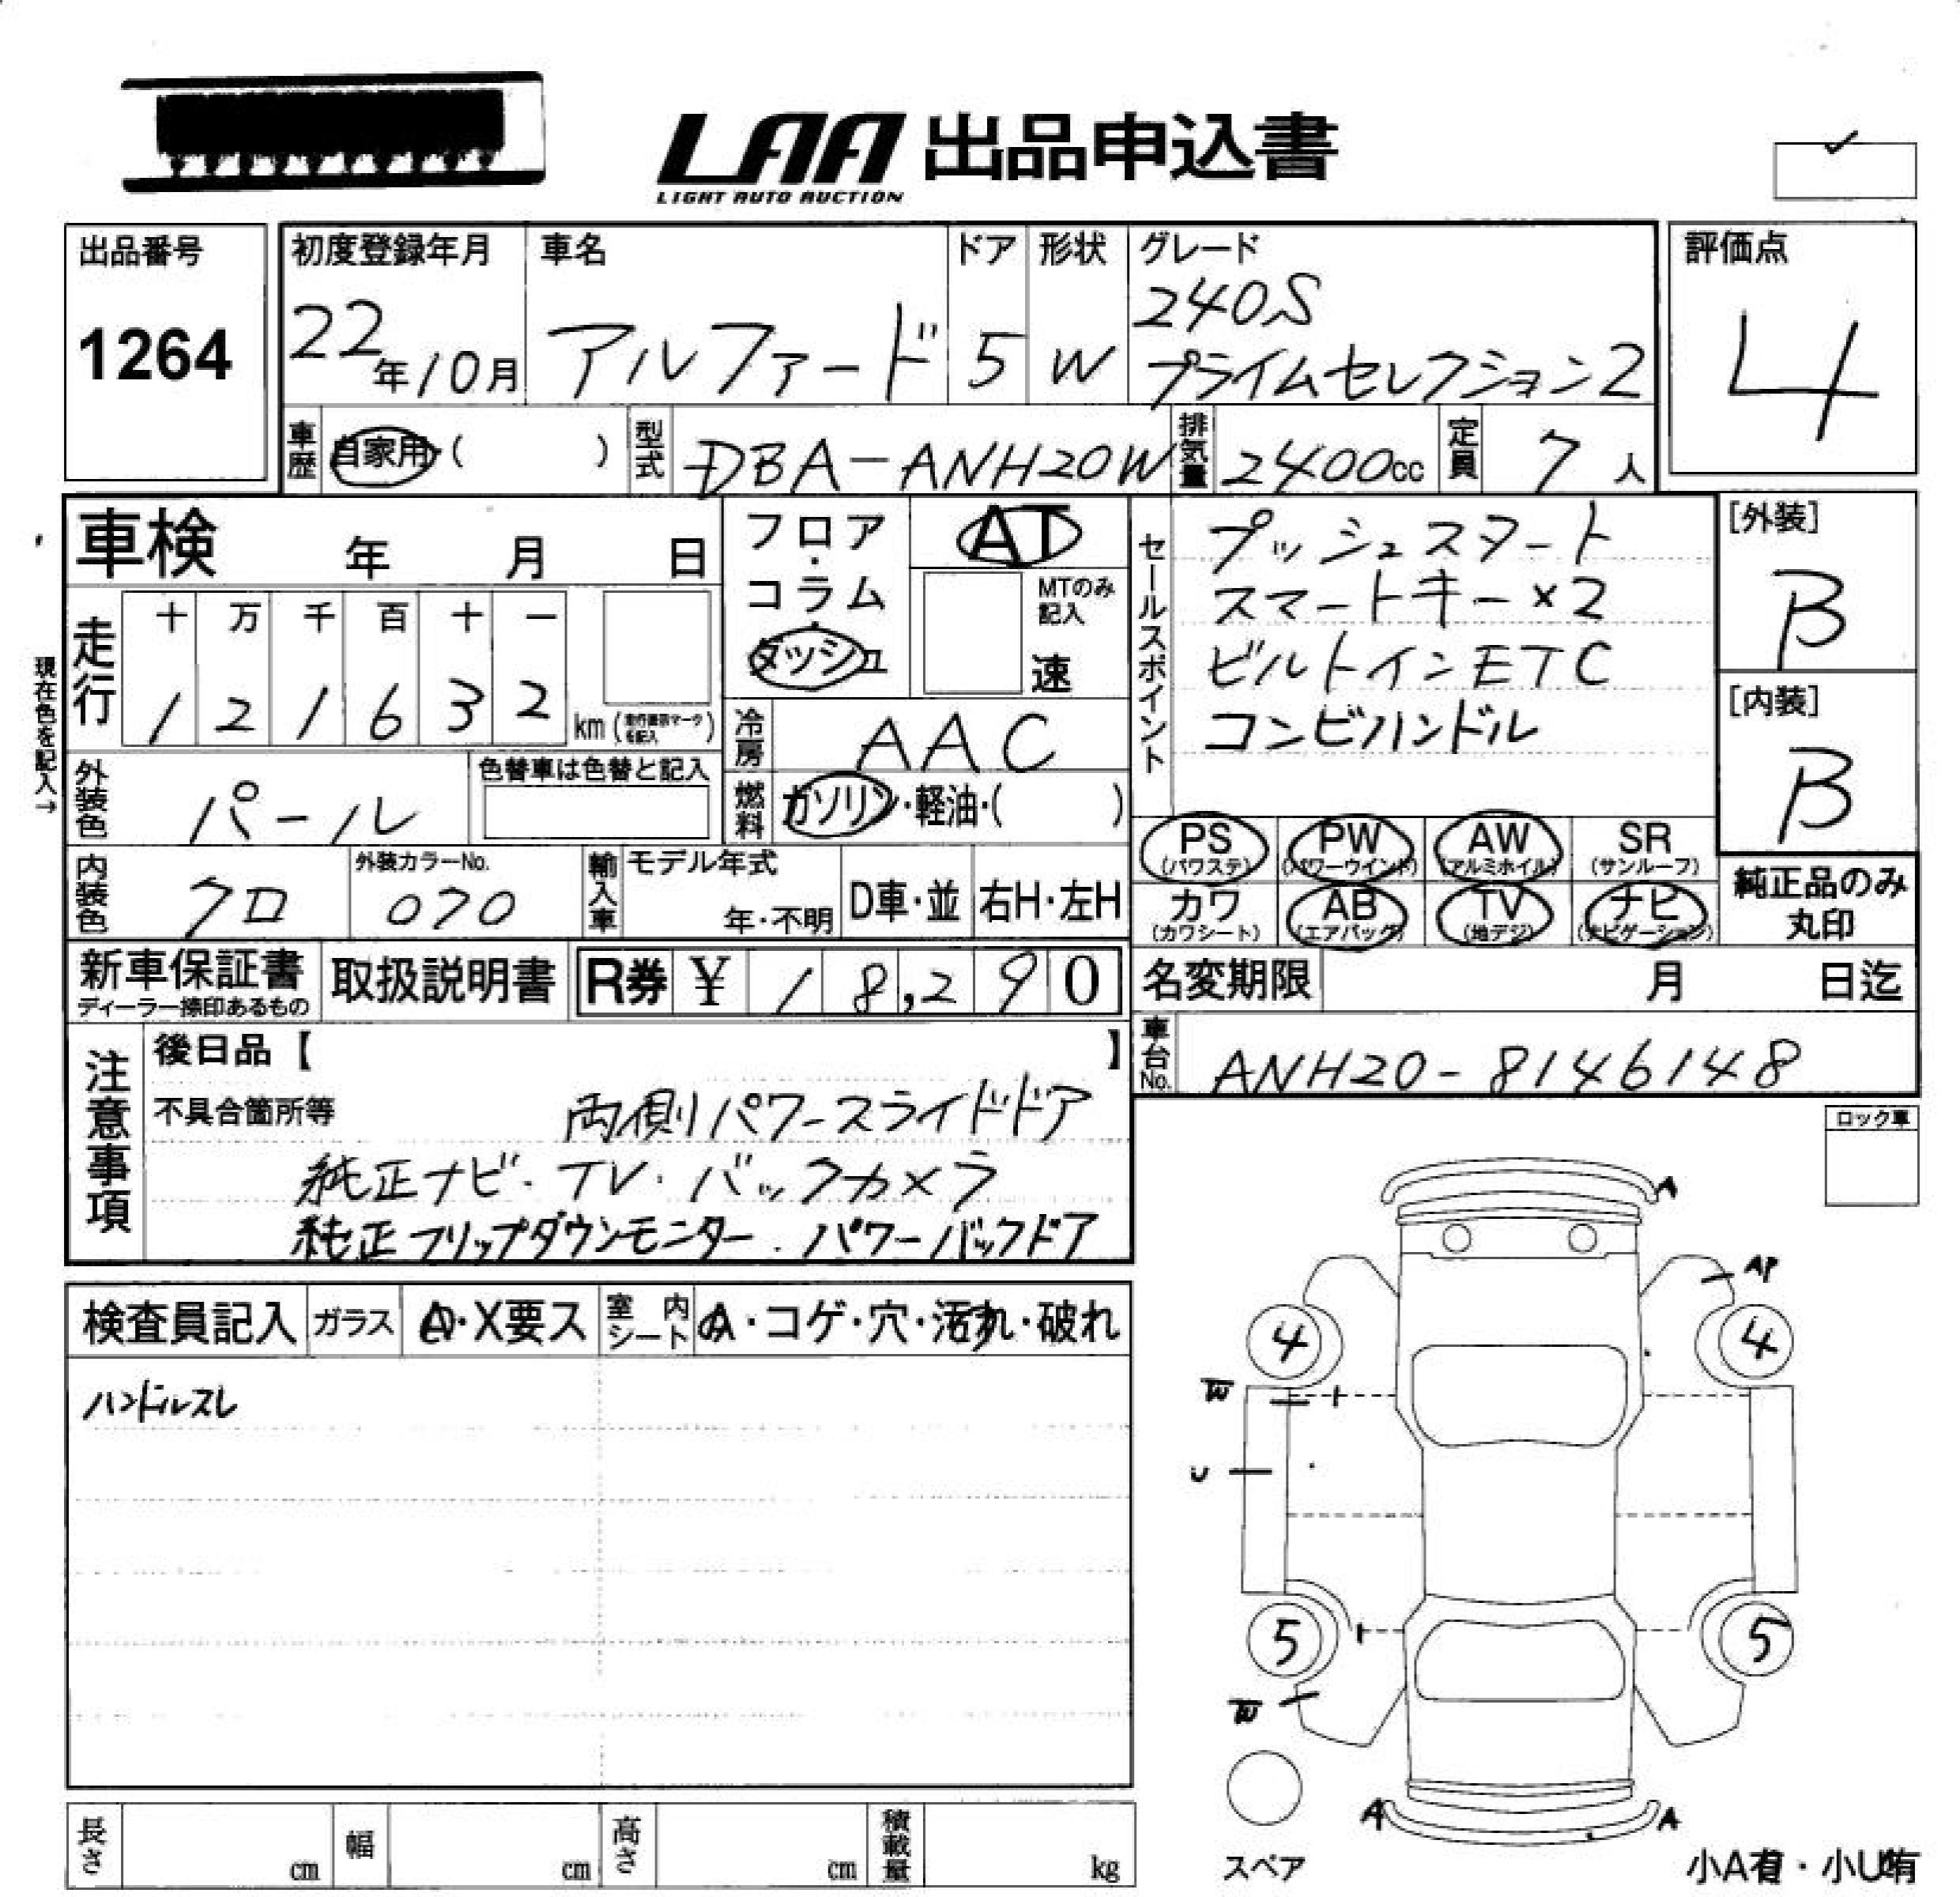 LAA 出品申込書
LIGHT AUTO AUCTION
出品番号
1264
初度登録年月
22年10月
車名
アルファード
ドア
5
形状
W
グレード
240S
プライムセレクション2
評価点
4
車歴 自家用・( )
型式 DBA-ANH20W
排気量 2400cc
定員 7人
車検 年 月 日
フロア・コラム・ダッシュ
AT
MTのみ記入
速
走行
十 万 千 百 十 一
1 2 1 6 3 2 km (走行国別マークを記入)
現在色を記入→
冷房 AAC
外装色 パール
色替車は色替と記入
燃料 ガソリン・軽油・( )
内装色 クロ
外装カラーNo.
070
輸入車 モデル年式
年・不明
D車・並
右H・左H
セールスポイント
プッシュスタート
スマートキー×2
ビルトインETC
コンビハンドル
[外装]
B
[内装]
B
PS (パワステ)
PW (パワーウインド)
AW (アルミホイル)
SR (サンルーフ)
カワ (カワシート)
AB (エアバッグ)
TV (地デジ)
ナビ (ナビゲーション)
純正品のみ丸印
新車保証書
ディーラー捺印あるもの
取扱説明書
R券 ¥ 18,290
名変期限 月 日迄
車台No. ANH20-8146148
注意事項
後日品【 】
不具合箇所等
両側パワースライドドア
純正ナビ・TV・バックカメラ
純正フリップダウンモニター・パワーバックドア
ロック車
検査員記入
ガラス A・X要ス
室内シート A・コゲ・穴・汚れ・破れ
ハンドルスレ
A
AP
4
4
W
U
5
5
W
A
A
スペア
小A有・小U有
長さ cm
幅 cm
高さ cm
積載量 kg